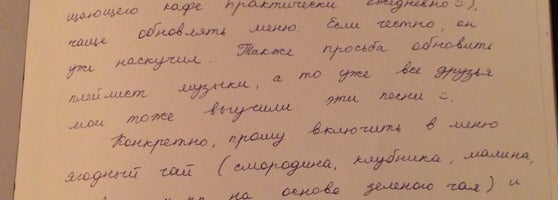 щающего кафе практически ежедневно☺),
чаще обновлять меню. Если честно, он
уже наскучил. Также просьба обновить
плейлист музыки, а то уже все друзья
мои тоже выучили эти песни ☺.
Конкретно, прошу включить в меню
ягодный чай (смородина, клубника, малина,
на основе зеленого чая) и